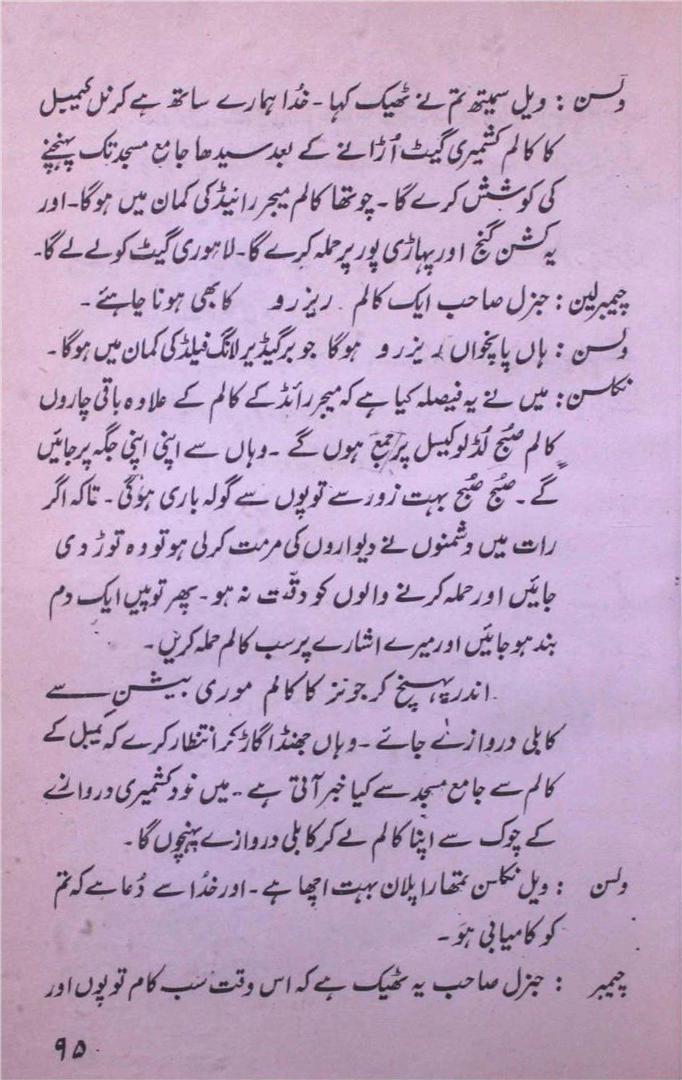 ولسن : ویل سمیتھ تم نے ٹھیک کہا ۔ خُدا ہمارے ساتھ ہے کرنل کیمبل
کا کالم کشمیری گیٹ اُڑانے کے بعد سیدھا جامع مسجد تک پہنچنے
کی کوشش کرے گا ۔ چوتھا کالم میجر رانیڈ کی کمان میں ہوگا ۔ اور
یہ کشن گنج اور پہاڑی پور پر حملہ کرے گا ۔ لاہوری گیٹ کو لے لے گا ۔
چیمبرلین : جنرل صاحب ایک کالم ریزرو کا بھی ہونا چاہئے ۔
ولسن : ہاں پانچواں ریزرو ہوگا جو برگیڈیر لانگ فیلڈ کی کمان میں ہوگا ۔
نکلسن : میں نے یہ فیصلہ کیا ہے کہ میجر رائڈ کے کالم کے علاوہ باقی چاروں
کالم صُبح لُڈلو کیسل پر جمع ہوں گے ۔ وہاں سے اپنی اپنی جگہ پر جائیں
گے ۔ صُبح صُبح بہت زور سے توپوں سے گولہ باری ہوگی ۔ تاکہ اگر
رات میں دشمنوں نے دیواروں کی مرمت کرلی ہو تو وہ توڑ دی
جائیں اور حملہ کرنے والوں کو دقّت نہ ہو ۔ پھر توپیں ایک دم
بند ہو جائیں اور میرے اشارے پر سب کالم حملہ کریں ۔
اندر پہنچ کر جونز کا کالم موری بیشن سے
کابلی دروازے جائے ۔ وہاں جھنڈا گاڑ کر انتظار کرے کہ کیمبل کے
کالم سے جامع مسجد سے کیا خبر آتی ہے ۔ میں خود کشمیری دروازے
کے چوک سے اپنا کالم لے کر کابلی دروازے پہنچوں گا ۔
ولسن : ویل نکلسن تمھارا پلان بہت اچھا ہے ۔ اور خُدا سے دُعا ہے کہ تم
کو کامیابی ہو ۔
چیمبر : جنرل صاحب یہ ٹھیک ہے کہ اس وقت سب کام توپوں اور
۹۵